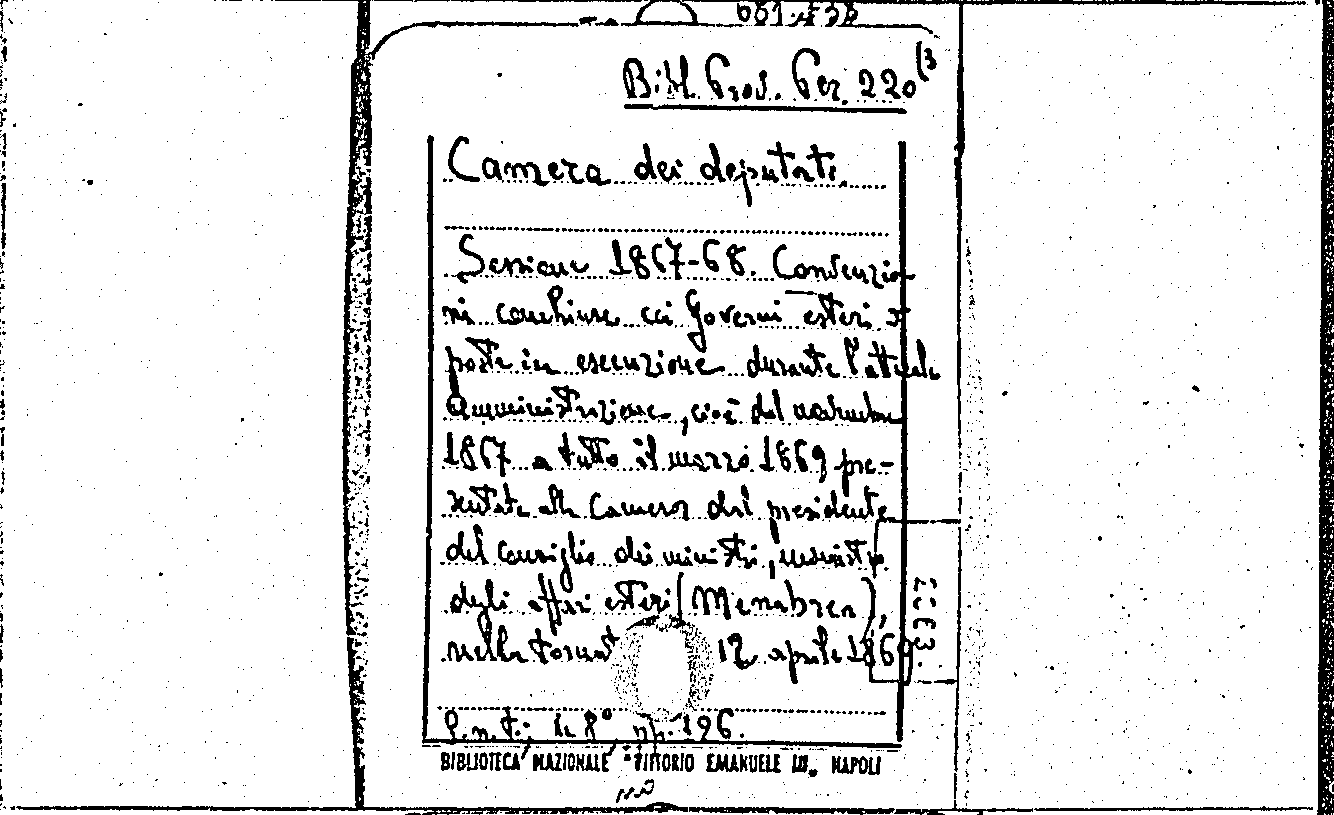 Bibl. Prov. Per. 220(3
Camera dei deputati.
Sessione 1867-68. Convenzio-
ni conchiuse coi Governi esteri e
poste in esecuzione durante l'attuale
Amministrazione, cioè dal novembre
1867 a tutto il marzo 1869 pre-
sentate alla Camera dal presidente
del consiglio dei ministri, ministro
degli affari esteri (Menabrea),
nella tornat 12 aprile 1869.
S.n.t.; in 8°, pp. 196.
BIBLIOTECA NAZIONALE "VITTORIO EMANUELE III" NAPOLI